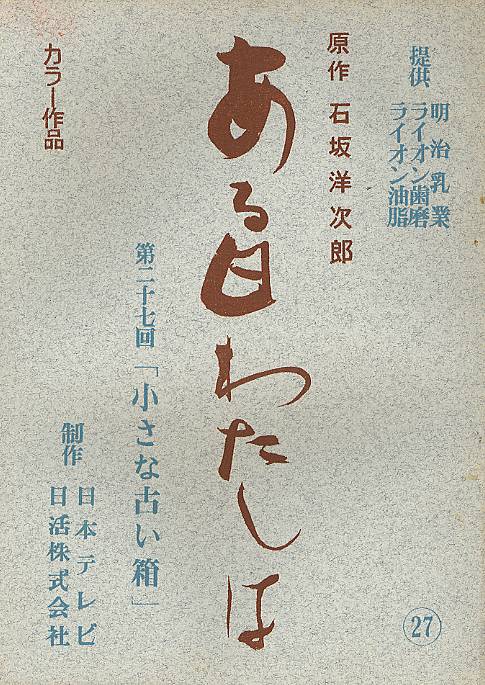 提供
明治乳業
ライオン歯磨
ライオン油脂
原作 石坂洋次郎
ある日わたしは
カラー作品
第二十七回「小さな古い箱」
制作
日本テレビ
日活株式会社
27